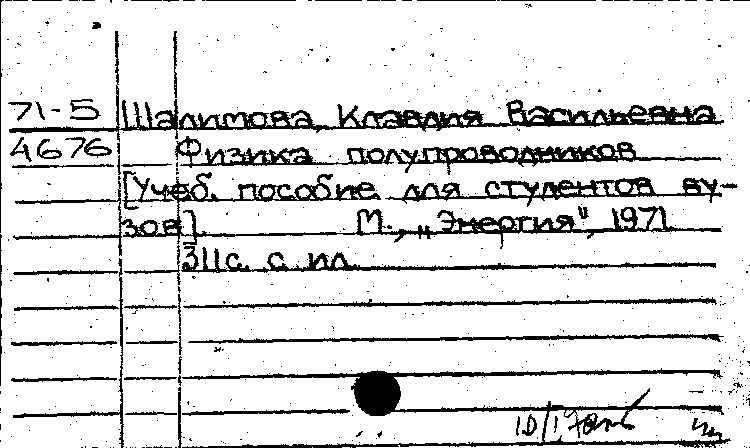 71-5 Шалимова, Клавдия Васильевна
4676 Физика полупроводников
[Учеб. пособие для студентов ву-
зов]. М., „Энергия", 1971
311 с. с ил.